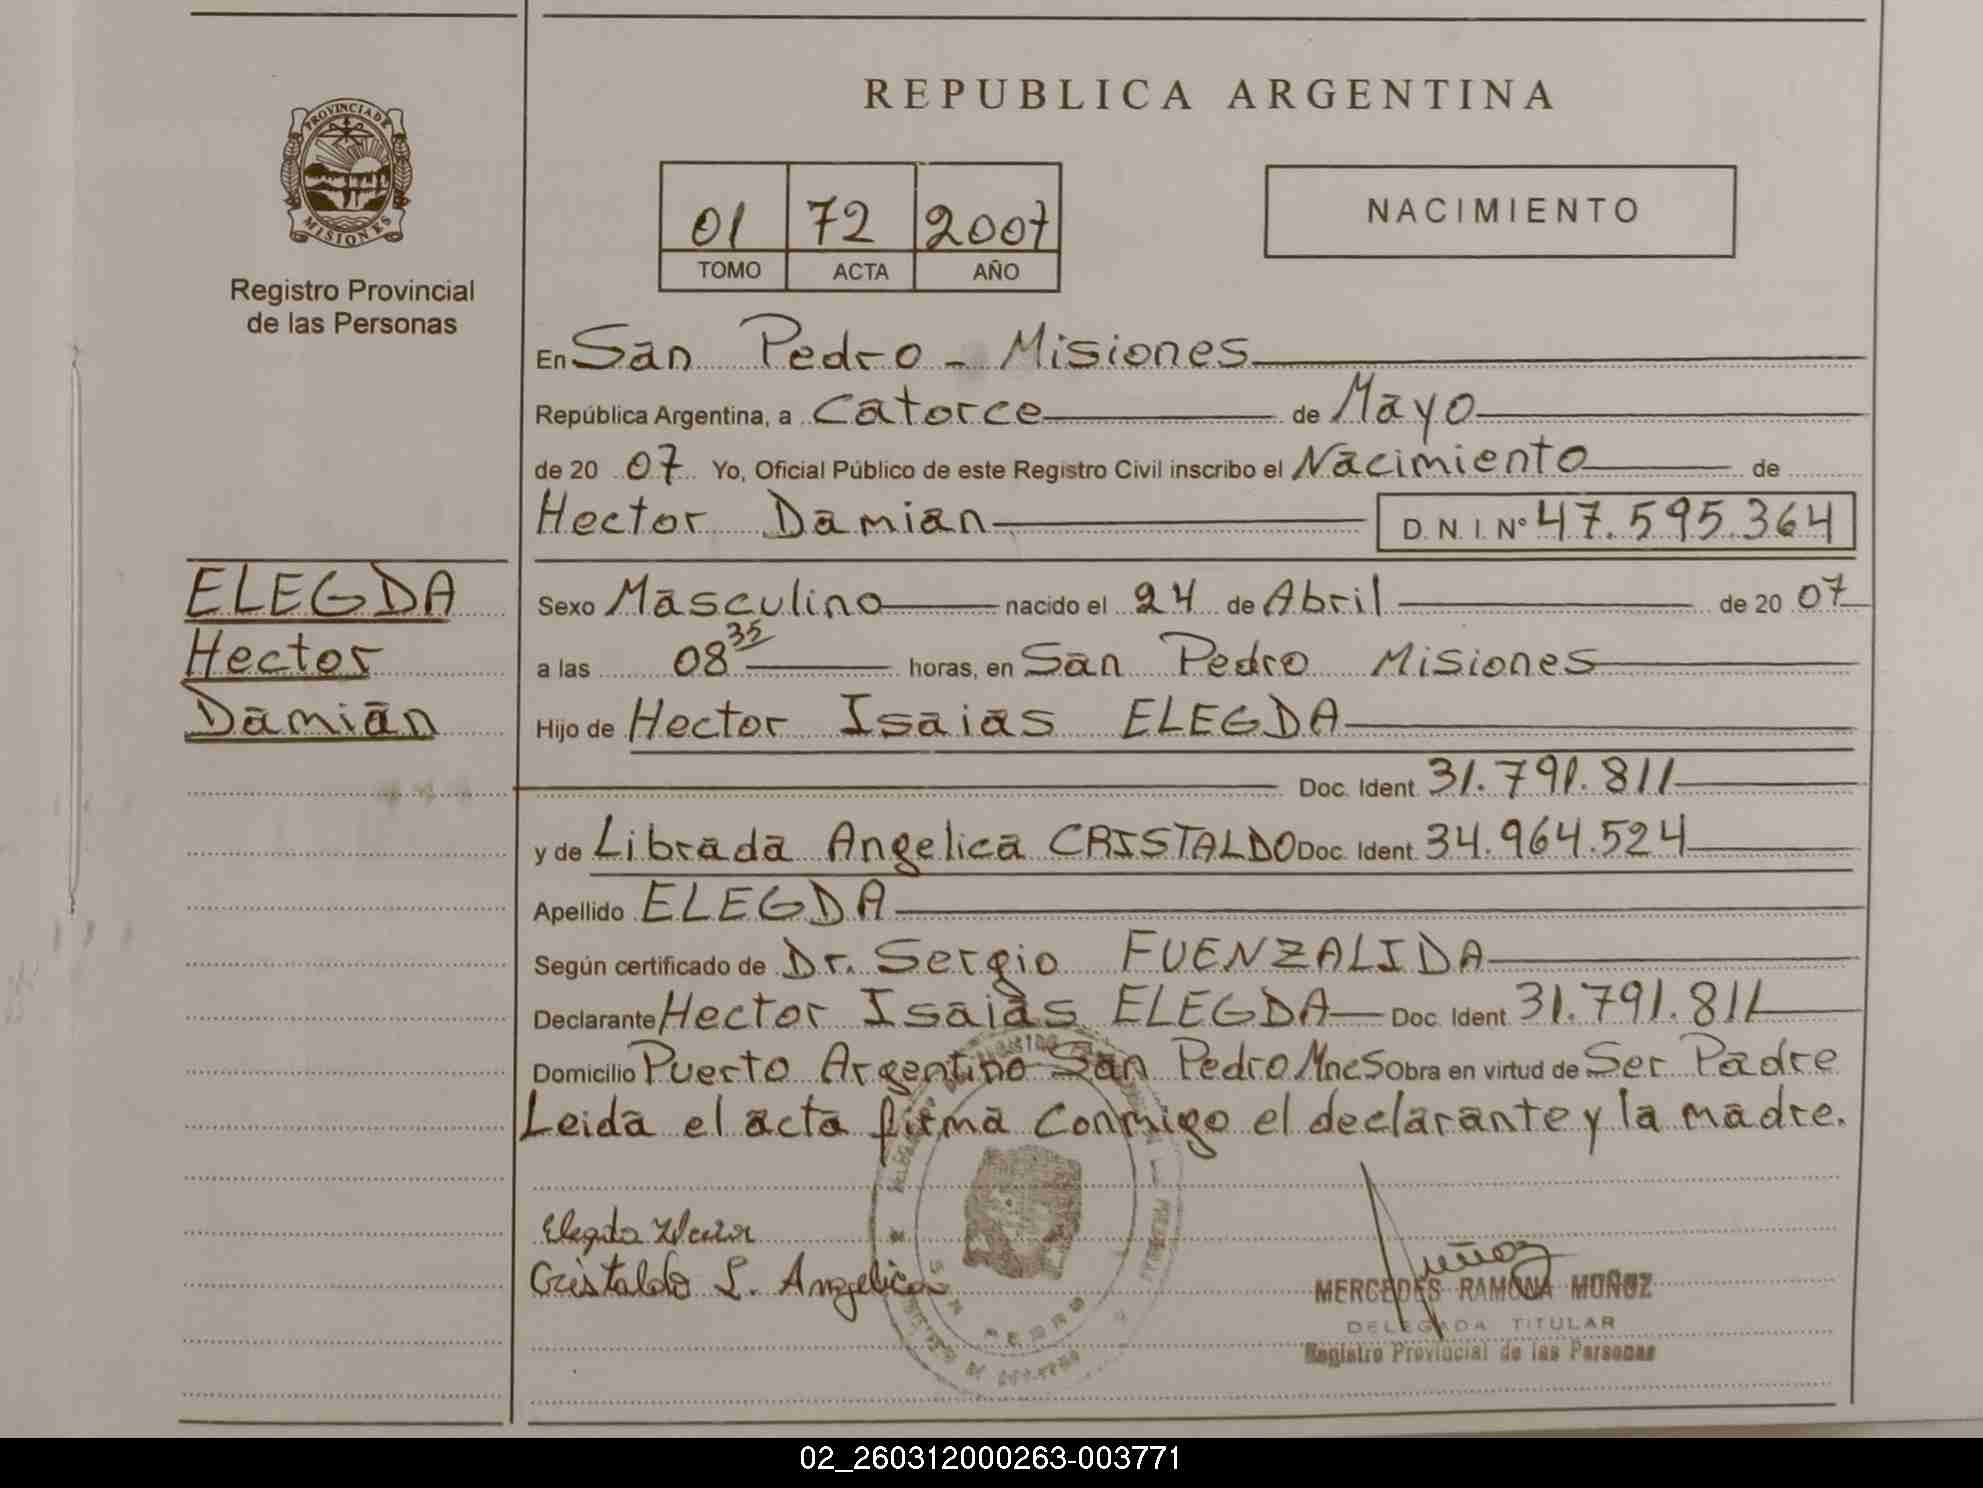 PROVINCIA DE
MISIONES
Registro Provincial
de las Personas
ELEGDA
Hector
Damián
REPUBLICA ARGENTINA
01 72 2007
TOMO ACTA AÑO
NACIMIENTO
En San Pedro - Misiones
República Argentina, a Catorce de Mayo
de 20 07 Yo, Oficial Público de este Registro Civil inscribo el Nacimiento de
Hector Damián D. N. I. Nº 47.595.364
Sexo Masculino nacido el 24 de Abril de 20 07
a las 08 35 horas, en San Pedro Misiones
Hijo de Hector Isaias ELEGDA
Doc. Ident. 31.791.811
y de Librada Angelica CRISTALDO Doc. Ident. 34.964.524
Apellido ELEGDA
Según certificado de Dr. Sergio FUENZALIDA
Declarante Hector Isaias ELEGDA Doc. Ident. 31.791.811
Domicilio Puerto Argentino San Pedro Mnes Obra en virtud de Ser Padre
Leida el acta firma conmigo el declarante y la madre.
Elegda
Cristaldo L. Angelica
Muñoz
MERCEDES RAMONA MUÑOZ
DELEGADA TITULAR
Registro Provincial de las Personas
SAN PEDRO
02_260312000263-003771